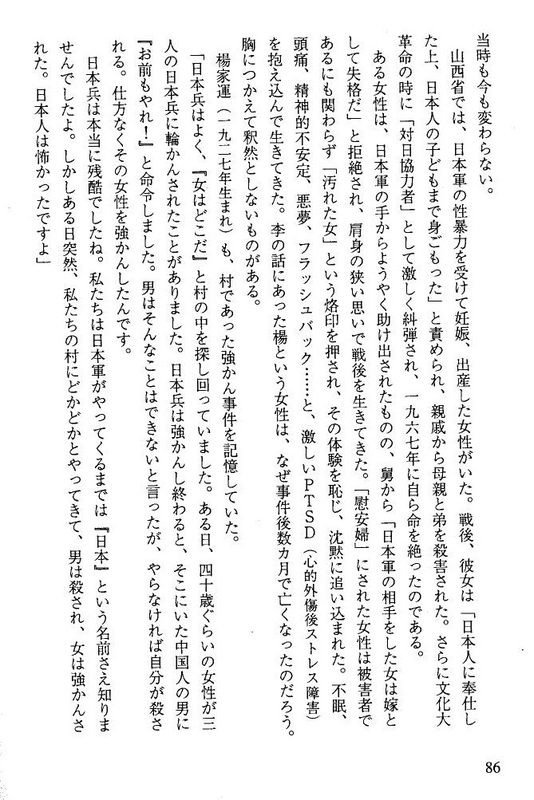 当時も今も変わらない。
　山西省では、日本軍の性暴力を受けて妊娠、出産した女性がいた。戦後、彼女は「日本人に奉仕し
た上、日本人の子どもまで身ごもった」と責められ、親戚から母親と弟を殺害された。さらに文化大
革命の時に「対日協力者」として激しく糾弾され、一九六七年に自ら命を絶ったのである。
　ある女性は、日本軍の手からようやく助け出されたものの、舅から「日本軍の相手をした女は嫁と
して失格だ」と拒絶され、肩身の狭い思いで戦後を生きてきた。「慰安婦」にされた女性は被害者で
あるにも関わらず「汚れた女」という烙印を押され、その体験を恥じ、沈黙に追い込まれた。不眠、
頭痛、精神的不安定、悪夢、フラッシュバック……と、激しいPTSD（心的外傷後ストレス障害）
を抱え込んで生きてきた。李の話にあった楊という女性は、なぜ事件後数カ月で亡くなったのだろう。
胸につかえて釈然としないものがある。
　楊家運（一九二七年生まれ）も、村であった強かん事件を記憶していた。
「日本兵はよく、『女はどこだ』と村の中を探し回っていました。ある日、四十歳ぐらいの女性が三
人の日本兵に輪かんされたことがありました。日本兵は強かんし終わると、そこにいた中国人の男に
『お前もやれ！』と命令しました。男はそんなことはできないと言ったが、やらなければ自分が殺さ
れる。仕方なくその女性を強かんしたんです。
　日本兵は本当に残酷でしたね。私たちは日本軍がやってくるまでは『日本』という名前さえ知りま
せんでしたよ。しかしある日突然、私たちの村にどかどかとやってきて、男は殺され、女は強かんさ
れた。日本人は怖かったですよ」
86